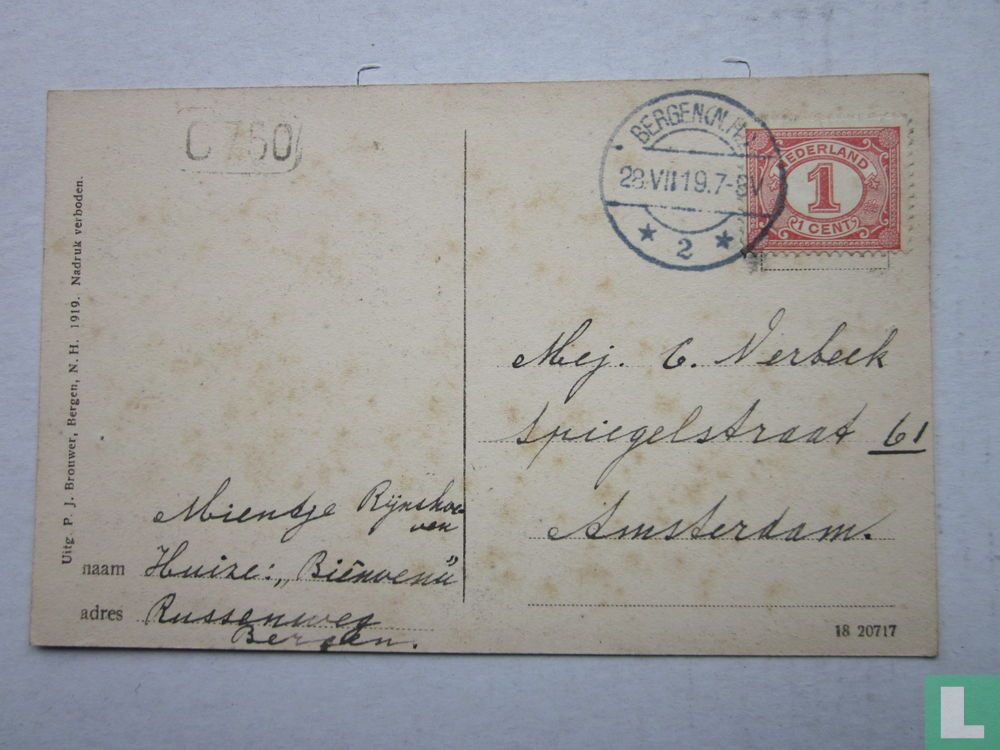 C 760
BERGEN (N.H.)
28.VII 19.7-8V
2
NEDERLAND
1
1 CENT
Mej. C. Verbeek
Spiegelstraat 61
Amsterdam.
Mientje Rijnshoe-
ven
naam Huize: „Biënvenu"
adres Russenweg
Bergen.
Uitg. P. J. Brouwer, Bergen, N. H. 1919. Nadruk verboden.
18 20717
L